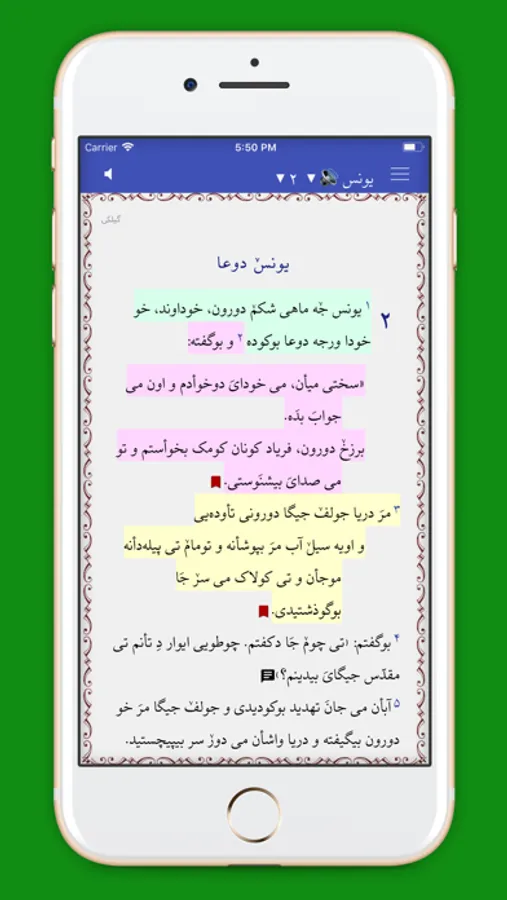 Carrier 5:50 PM
یونس ▼ ۲ ▼
گیلکی
یونسˇ دوعا
۲ ۱ یونس جٚه ماهی شکمˇ دورون، خوداوند، خو
خودا ورجه دوعا بوکوده ۲ و بوگفته:
«سختی میأن، می خودایَ دوخوأدم و اون می
جوابَ بدَه.
برزخˇ دورون، فریاد کونان کومک بخوأستم و تو
می صدایَ بیشنَوستی.
۳ مرَ دریا جولفˇ جیگا دورونی تأوده‌یی
و اویه سیلˇ آب مرَ بپوشأنه و تومامˇ تی پیله‌دأنه
موجأن و تی کولاک می سرˇ جَا
بوگوذشتیدی.
۴ بوگفتم: ‹تی چومˇ جَا دکفتم. چوطویی ایوار دِ تأنم تی
مقدّس جیگایَ بیدینم؟›
۵ آبأن می جانَ تهدید بوکودیدی و جولفˇ جیگا مرَ خو
دورون بیگیفته و دریا واشأن می دورˇ سر بیپیچستید.